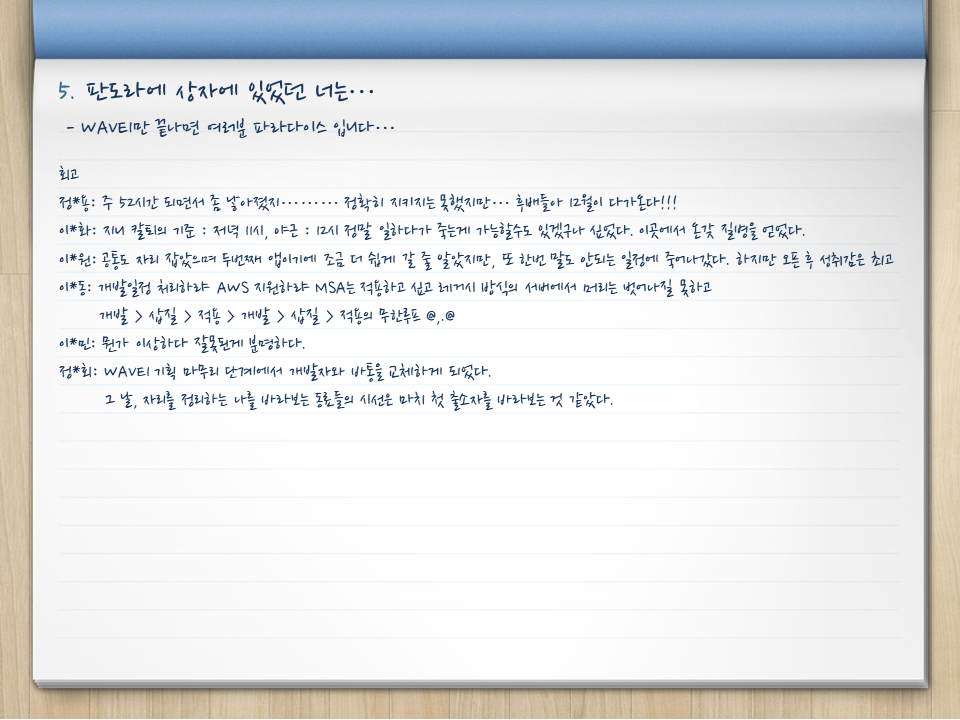 5. 판도라에 상자에 있었던 너는···
- WAVE1만 끝나면 여러분 파라다이스 입니다···
회고
정*용: 주 52시간 되면서 좀 낳아졌지········· 정확히 지키지는 못했지만··· 후배들아 12월이 다가온다!!!
이*화: 지니 칼퇴의 기준 : 저녁 11시, 야근 : 12시 정말 일하다가 죽는게 가능할수도 있겠구나 싶었다. 이곳에서 온갖 질병을 얻었다.
이*원: 공통도 자리 잡았으며 두번째 앱이기에 조금 더 쉽게 갈 줄 알았지만, 또 한번 말도 안되는 일정에 죽어나갔다. 하지만 오픈 후 성취감은 최고
이*동: 개발일정 처리하랴 AWS 지원하랴 MSA는 적용하고 싶고 레거시 방식의 서버에서 머리는 벗어나질 못하고
개발 > 삽질 > 적용 > 개발 > 삽질 > 적용의 무한루프 @,.@
이*민: 뭔가 이상하다 잘못된게 분명하다.
정*회: WAVE1 기획 마무리 단계에서 개발자와 바통을 교체하게 되었다.
그 날, 자리를 정리하는 나를 바라보는 동료들의 시선은 마치 첫 출소자를 바라보는 것 같았다.